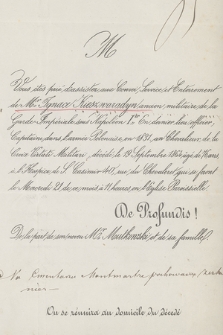 M
Vous êtes prié d'assister aux Convoi, Service et Enterrement
de Mr. Ignace ancien militaire de la
Garde Impériale sous Napoléon 1er. officier
Capitaine dans l'armée Polonaise, en 1831, et Chevalier de la
Croix Virtuti Militari, décédé le 19 Septembre âgé de ans
à l'Hospice de St. Casimir rue du Chevaleret, qui se feront
le Mercredi 21 de ce mois à 11 heures, en l'Église
De Profundis!
De la part de son neveu Mr. et de sa famille
Na Cmentarzu Montmartre pochowany
On se réunira au domicile du décédé